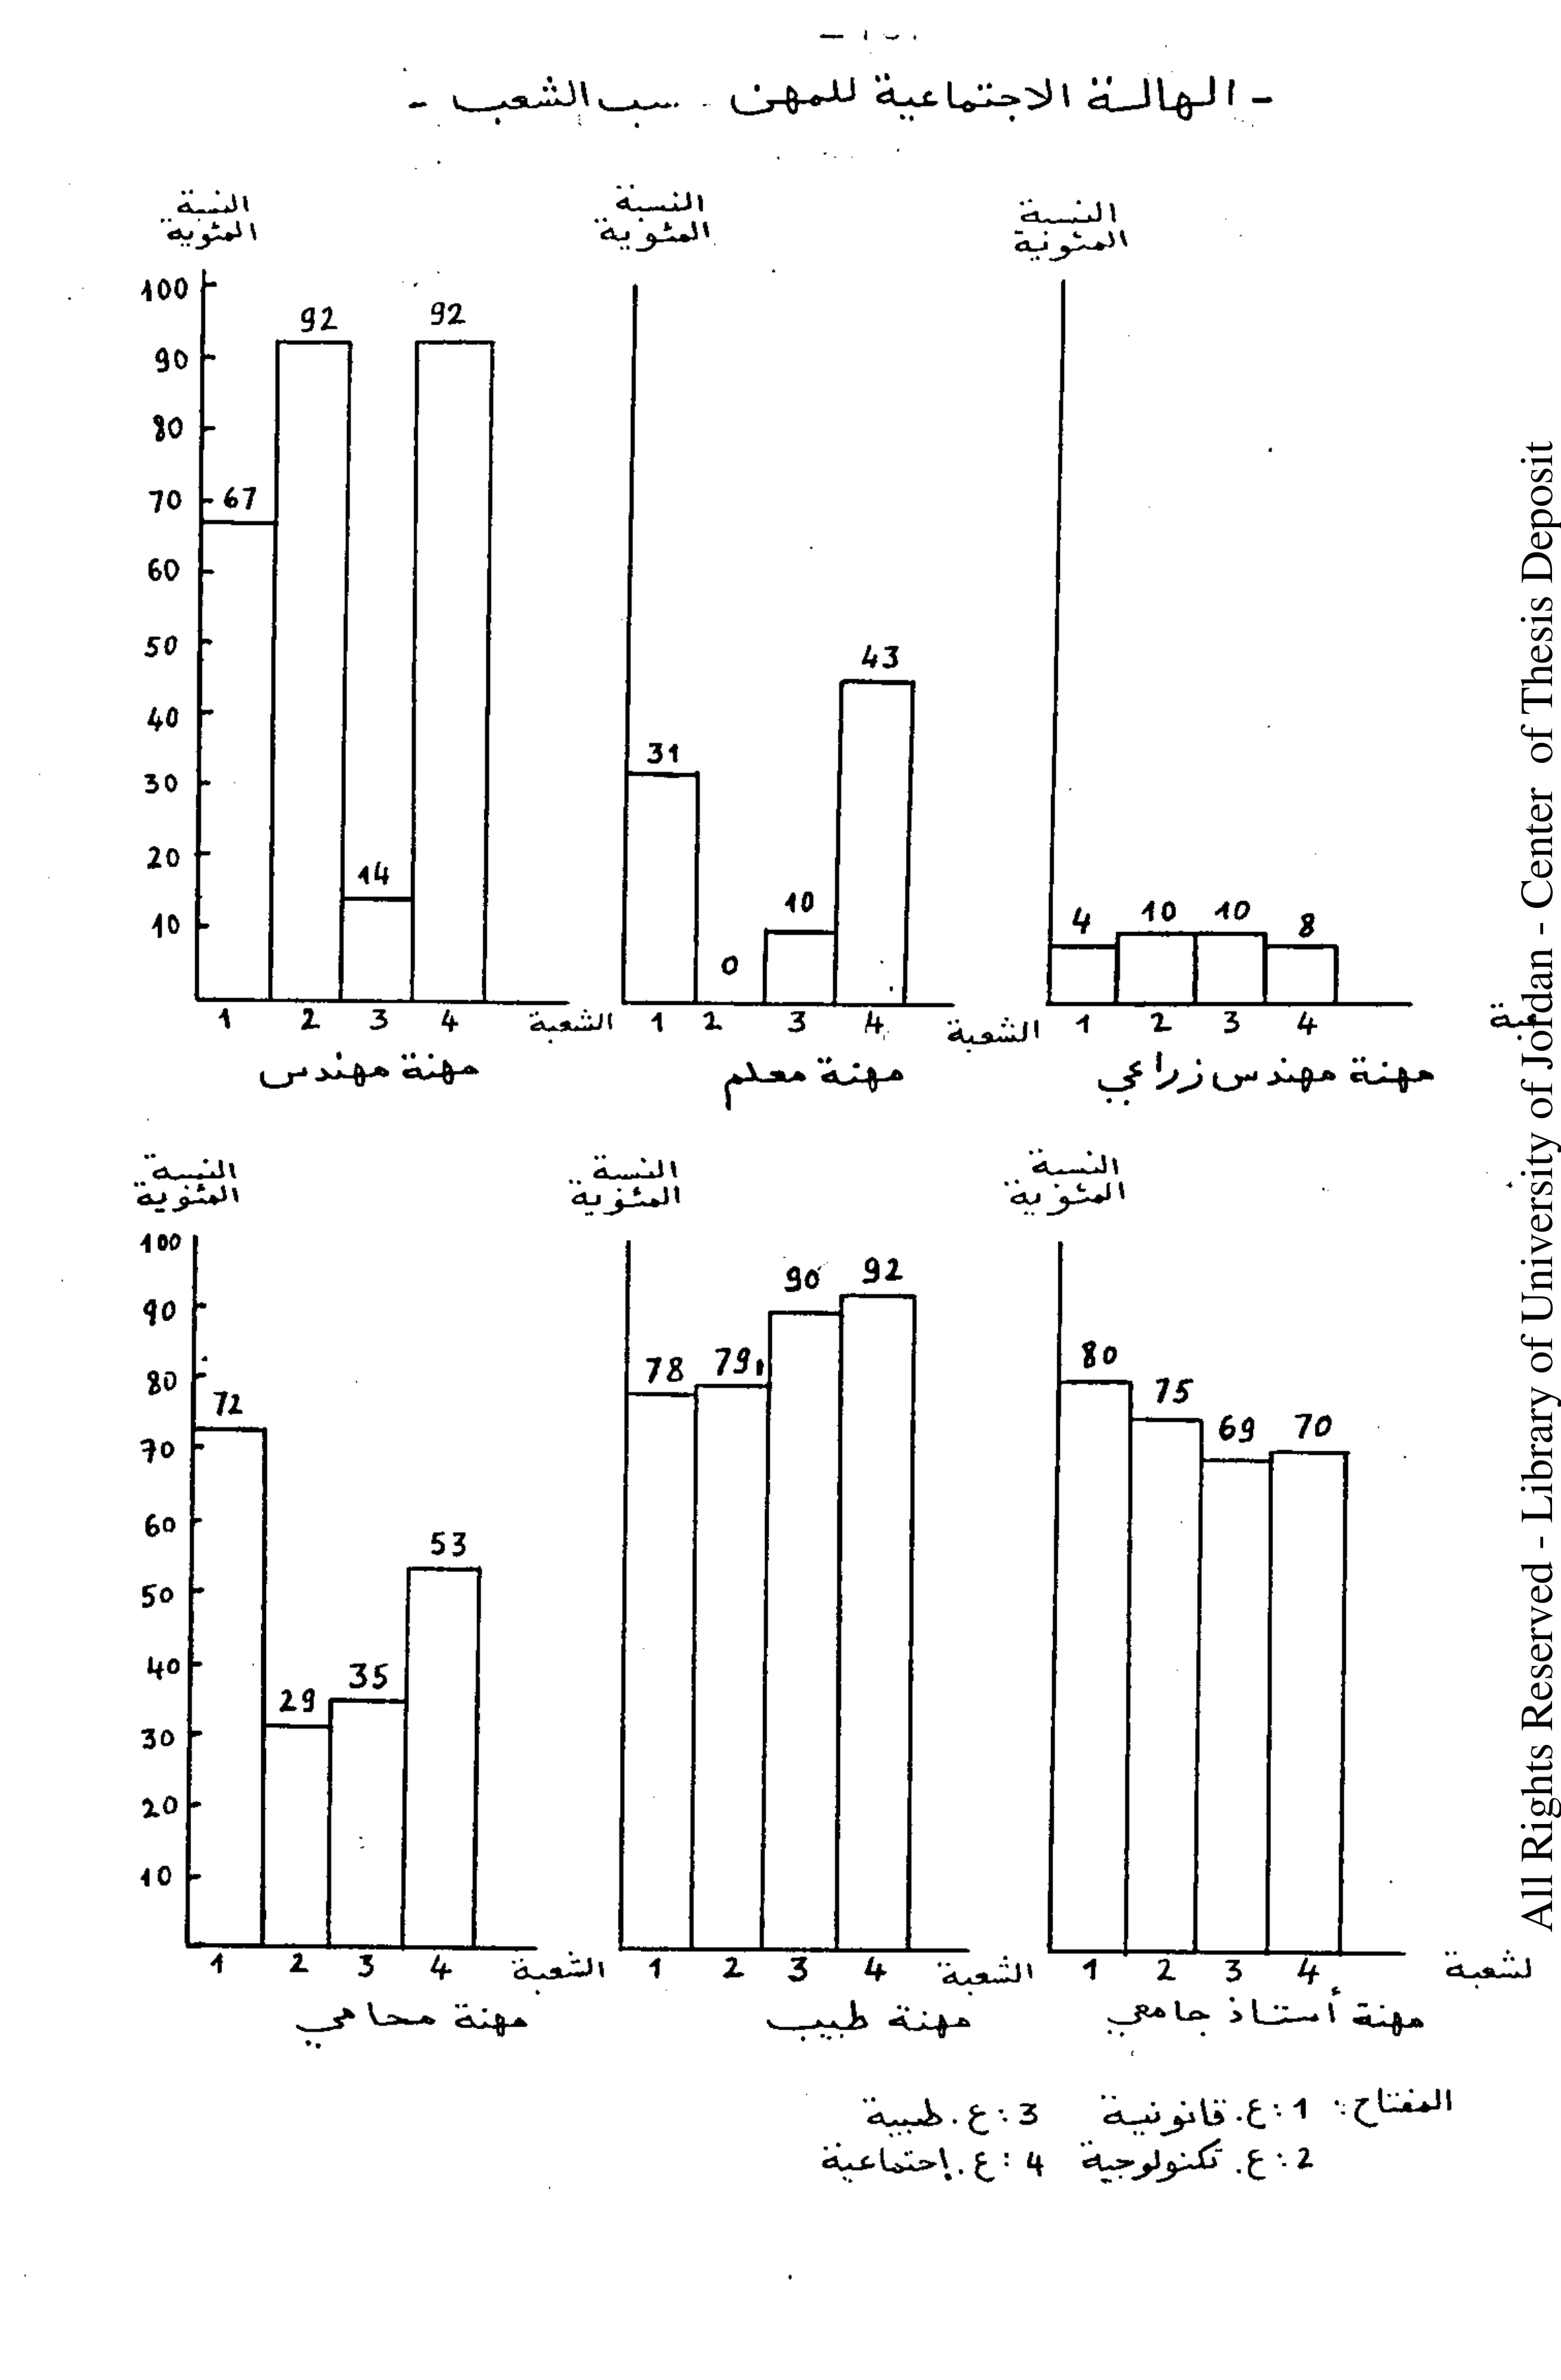 - الهالة الاجتماعية للمهن سب الشعب -
النسبة
المئوية
100
90
80
70
60
50
40
30
20
10
67
92
14
92
1 2 3 4 الشعبة
مهنة مهندس
النسبة
المئوية
31
0
10
43
1 2 3 4 الشعبة
مهنة معلم
النسبة
المئوية
4
10
10
8
1 2 3 4
مهنة مهندس زراعي
النسبة
المئوية
100
90
80
70
60
50
40
30
20
10
72
29
35
53
1 2 3 4 الشعبة
مهنة محامي
النسبة
المئوية
78
79
90
92
1 2 3 4 الشعبة
مهنة طبيب
النسبة
المئوية
80
75
69
70
1 2 3 4 لشعبة
مهنة أستاذ جامعي
المفتاح: 1: ع. قانونية 3: ع. طبية
2: ع. تكنولوجية 4: ع. إجتماعية
All Rights Reserved - Library of University of Jordan - Center of Thesis Deposit